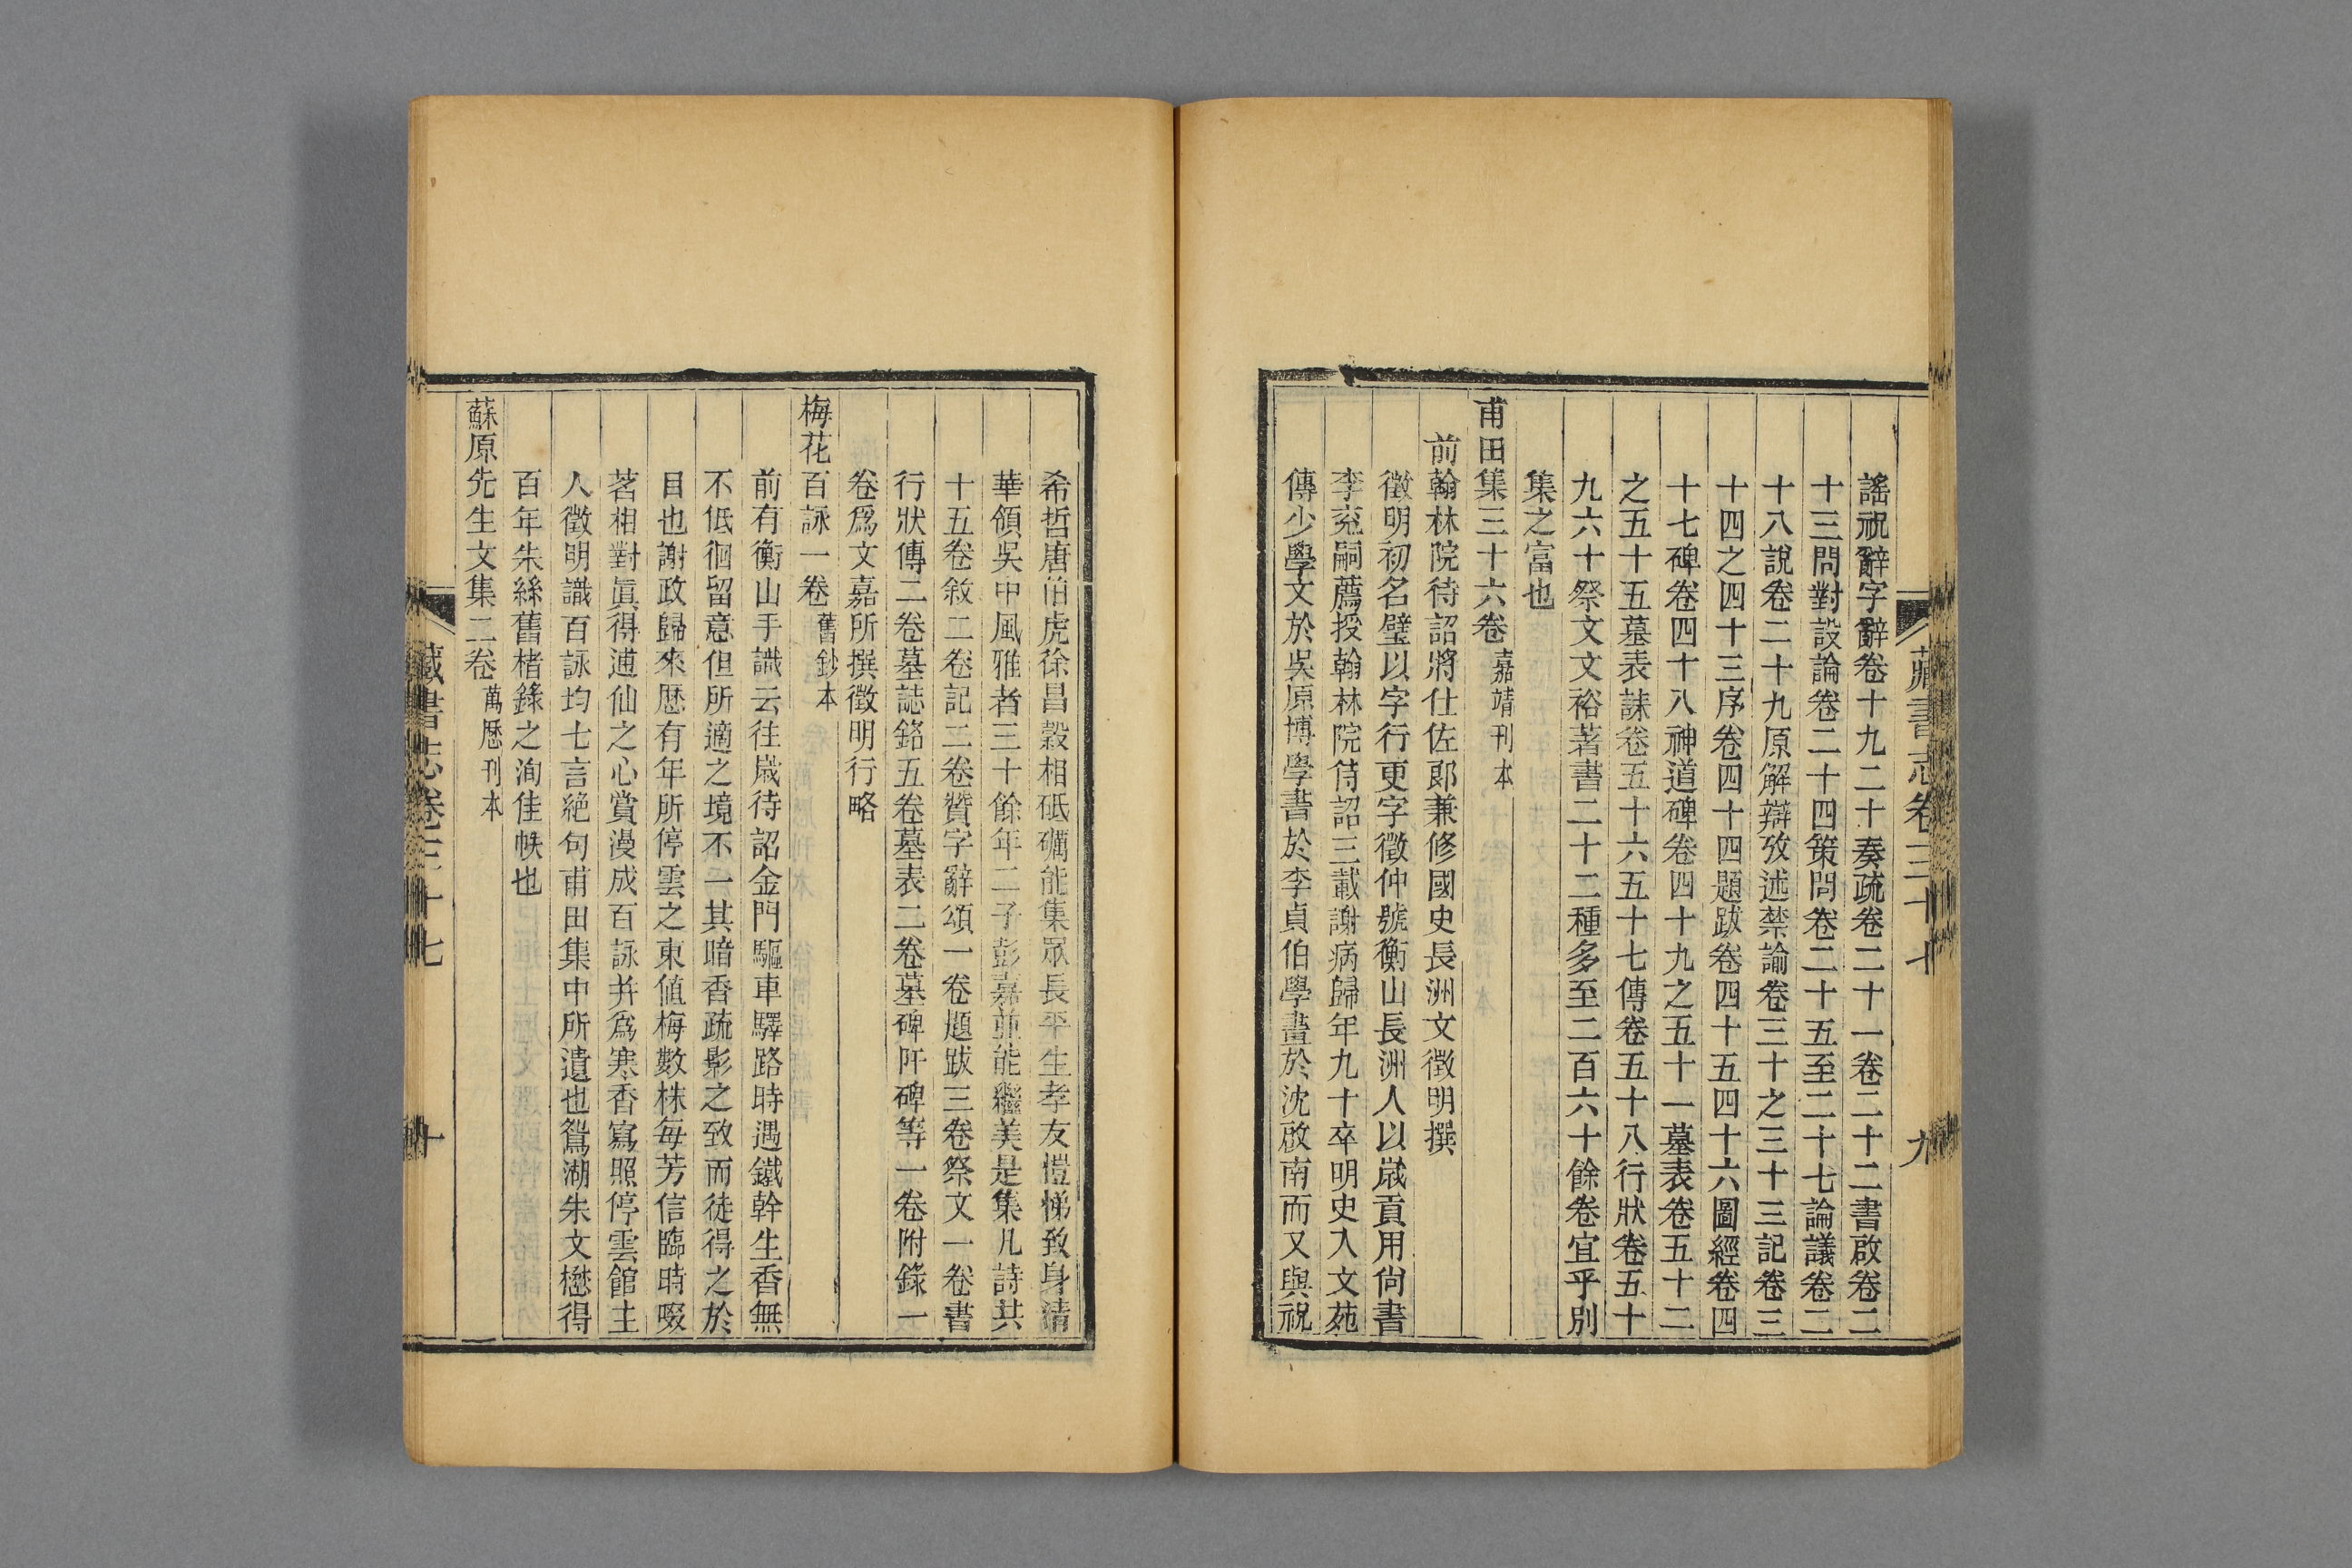 藏書志卷三十七
九
謠祝辭字辭卷十九二十奏疏卷二十一卷二十二書啟卷二
十三問對設論卷二十四策問卷二十五至二十七論議卷二
十八說卷二十九原解辯攷述禁諭卷三十之三十三記卷三
十四之四十三序卷四十四題跋卷四十五四十六圖經卷四
十七碑卷四十八神道碑卷四十九之五十一墓表卷五十二
之五十五墓表誄卷五十六五十七傳卷五十八行狀卷五十
九六十祭文文裕著書二十二種多至二百六十餘卷宜乎別
集之富也
甫田集三十六卷嘉靖刊本
前翰林院待詔將仕佐郎兼修國史長洲文徵明撰
徵明初名璧以字行更字徵仲號衡山長洲人以歲貢用尚書
李充嗣薦授翰林院待詔三載謝病歸年九十卒明史入文苑
傳少學文於吳原博學書於李貞伯學畫於沈啟南而又與祝
希哲唐伯虎徐昌穀相砥礪能集眾長平生孝友愷悌致身清
華領吳中風雅者三十餘年二子彭嘉並能繼美是集凡詩共
十五卷敘二卷記二卷贊字辭頌一卷題跋三卷祭文一卷書
行狀傳二卷墓誌銘五卷墓表二卷墓碑阡碑等一卷附錄一
卷為文嘉所撰徵明行略
梅花百詠一卷舊鈔本
前有衡山手識云往歲待詔金門驅車驛路時遇鐵幹生香無
不低徊留意但所適之境不一其暗香疏影之致而徒得之於
目也謝政歸來歷有年所停雲之東値梅數株每芳信臨時啜
茗相對眞得逋仙之心賞漫成百詠并為寒香寫照停雲館主
人徵明識百詠均七言絕句甫田集中所遺也鴛湖朱文懋得
百年朱絲舊楮錄之洵佳帙也
蘇原先生文集二卷萬歷刊本
藏書志卷三十七
十